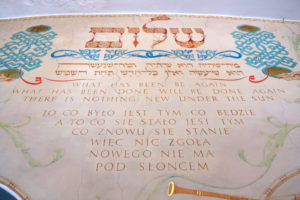 שלום
מה־שהיה הוא שיהיה ומה־שנעשה
הוא שיעשה ואין כל־חדש תחת השמש
WHAT HAS BEEN BE AGAIN
WHAT HAS BEEN DONE WILL BE DONE AGAIN
THERE IS NOTHING NEW UNDER THE SUN
TO CO BYŁO JEST TYM CO BĘDZIE
A TO CO SIĘ STAŁO JEST TYM
CO ZNOWU SIĘ STANIE
WIĘC NIC ZGOŁA
NOWEGO NIE MA
POD SŁOŃCEM